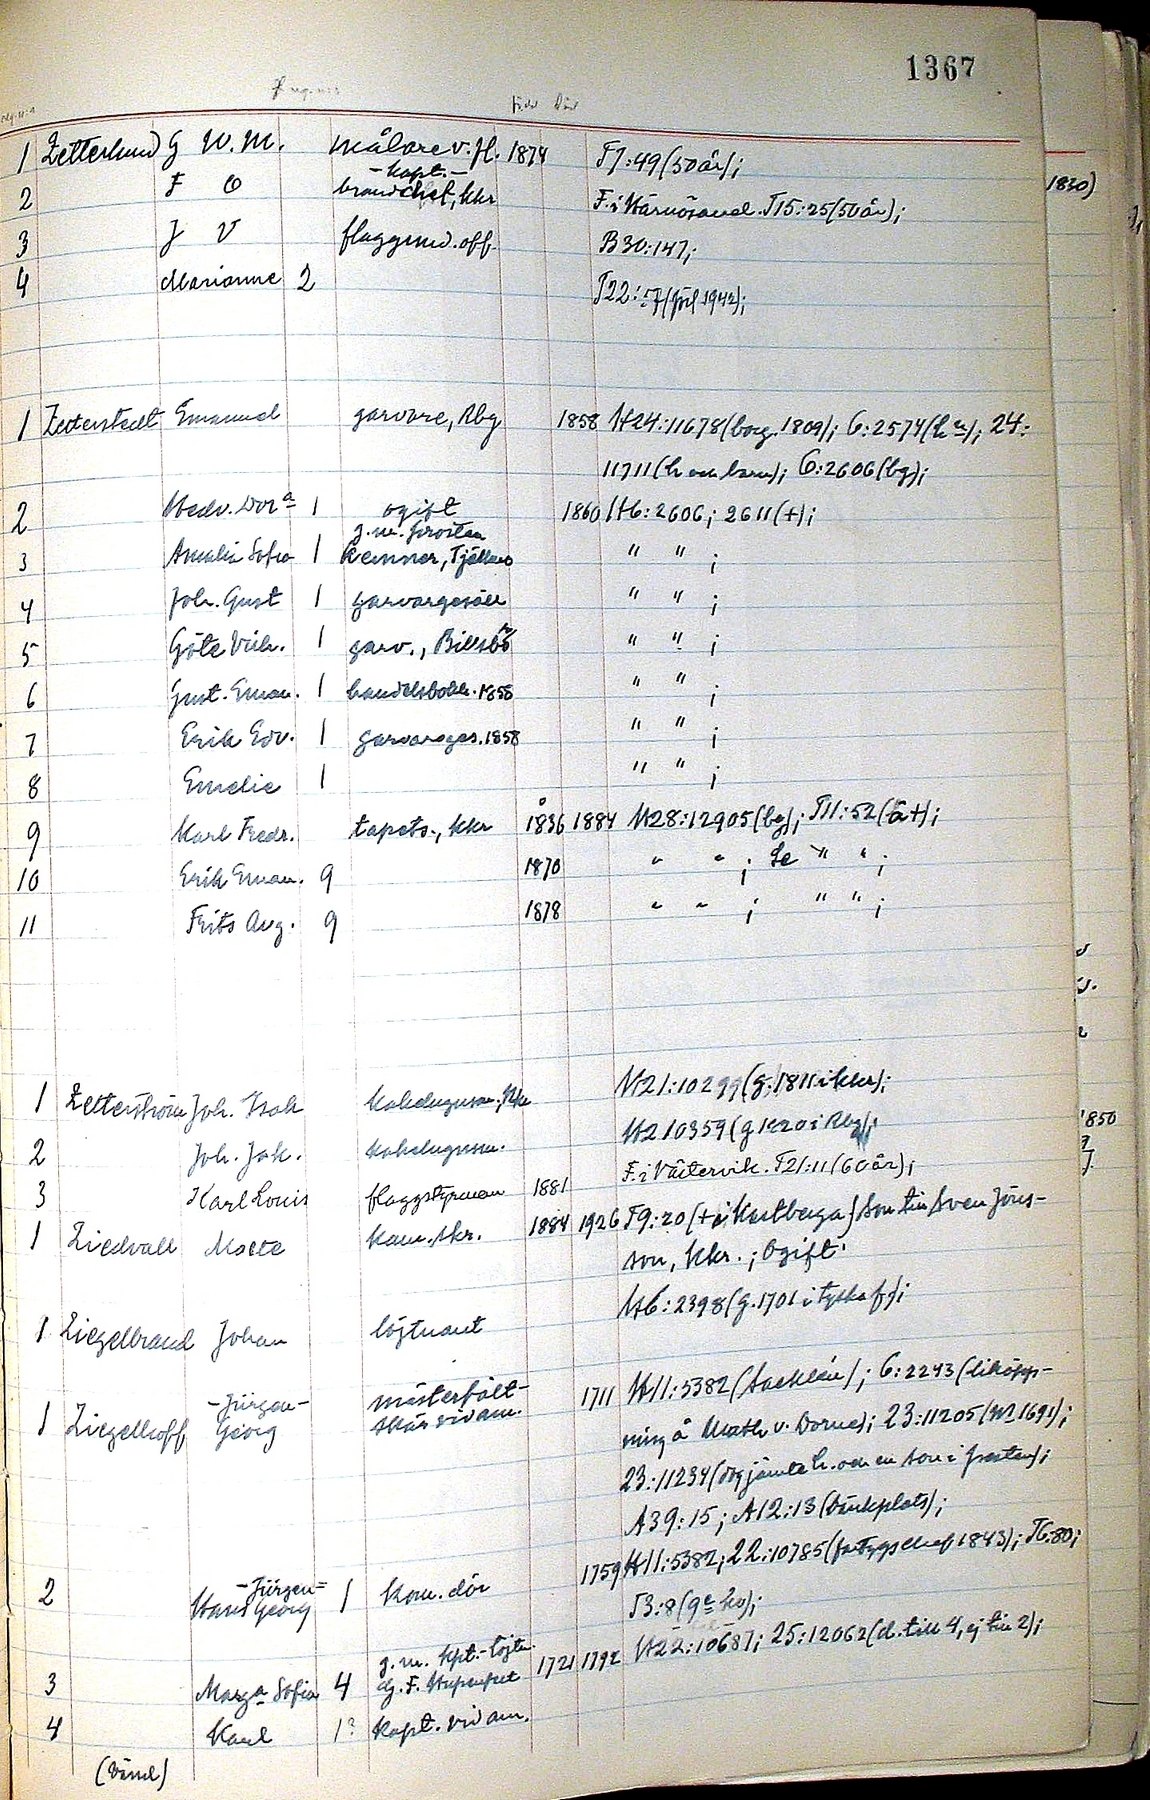 1367
Född Död
1 Zetterlund G W. M. målare v. fl. 1874 T7:49 (50 år);
2 F O -kapt.- brandchef, kkr F. i Härnösand. T15:25 (50 år);
3 J V flaggund.off. B30:147;
4 Marianne 2 T22:57 (jul 1942);
1 Zetterstedt Emanuel garvare, Rbg 1858 H24:11678 (borg. 1809); 6:2574 (h); 24:
11711 (h och barn); 6:2606 (bg);
2 Hedv. Dora 1 ogift 1860 H6:2606; 2611 (+);
g. m. prosten
3 Amalia Sofia 1 Kemner, " " ;
4 Joh. Gust 1 garvargesäll " " ;
5 Göte Vilh. 1 garv., " " ;
6 Gust. Eman. 1 handelsbokh. 1858 " " ;
7 Erik Edv. 1 garvareges. 1858 " " ;
8 Emelie 1 " " ;
9 Karl Fredr. tapets., kkr 1836 1884 H28:12905 (bg); T11:52 (åt);
10 Erik Eman. 9 1870 " " ; Se " " ;
11 Frits Aug. 9 1878 " " ; " " ;
1 Zetterström Joh. Isak kakelugnsm., Kkr H21:10299 (g. 1811 i kkr);
2 Joh. Jak. kakelugnsm. H210359 (g 1820 i Rbg);
3 Karl Louis flaggstyrman 1881 F. i Västervik. T21:11 (60 år);
1 Ziedvall Malte kam. skr. 1884 1926 T9:20 (+ i Kastberga) Son till Sven Jöns-
son, Kkr.; Ogift.
1 Ziegelbrand Johan löjtnant H6:2398 (g. 1701 i tyska f);
1 Ziegelhoff -Jürgen- Georg mästerfält-
skär vid am. 1711 H11:5382 ; 6:2243 (likköp-
ning å v. Dorne); 23:11205 (1691);
23:11234 (dog jämte h. och en son i pesten);
A39:15; A12:13 (bänkplats);
2 -Jürgen- Hans Georg 1 kom.dör 1759 H11:5382; 22:10785 (fartygschef 1843); T6:80;
T3:8 ;
3 Marga Sofia 4 g. m. kpt.-löjtn.
G. F. 1721 1792 H22:10687; 25:12062 (d. till 4, ej till 2);
4 Karl 1? kapt. vid am.
(Vänd)
1830)
1850